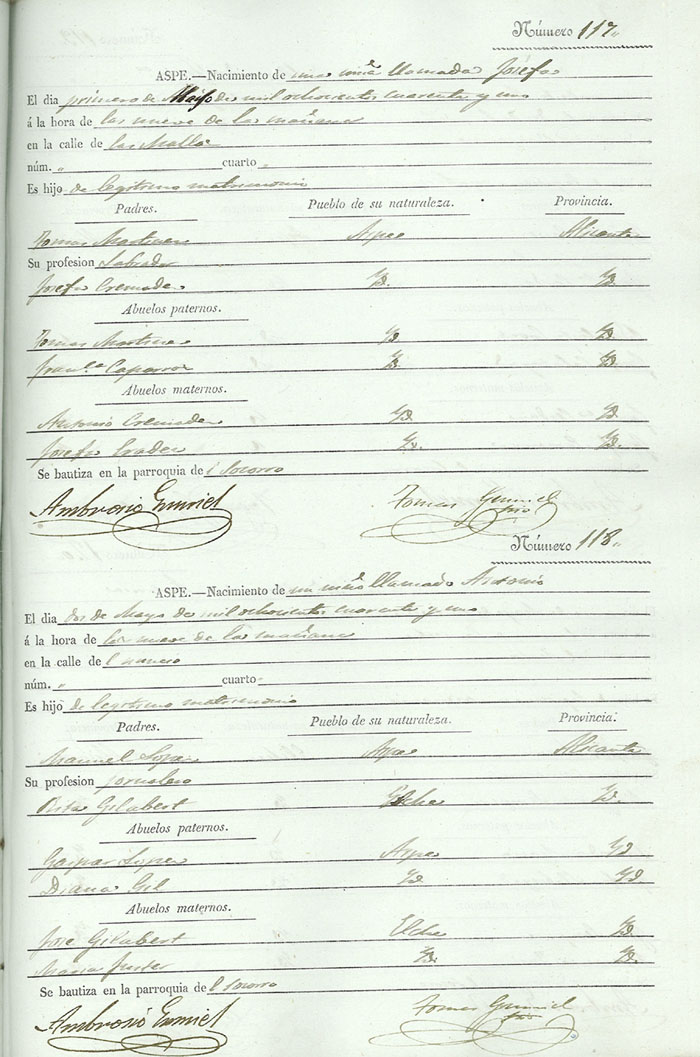 Número 117
ASPE.—Nacimiento de una niña llamada Josefa
El dia primero de Mayo de mil ochocientos cuarenta y uno
á la hora de las nueve de la mañana
en la calle de la Malla
núm. „ cuarto „
Es hijo de legitimo matrimonio
Padres. Pueblo de su naturaleza. Provincia.
Tomas Martinez Aspe Alicante
Su profesion Labrador
Josefa Cremades Yd. Yd.
Abuelos paternos.
Tomas Martinez Yd Yd.
Franca Caparros Yd. Yd.
Abuelos maternos.
Antonio Cremades Yd. Yd.
Josefa Yd. Yd.
Se bautiza en la parroquia del Socorro
Ambrosio Tomas
Número 118
ASPE.—Nacimiento de un niño llamado Antonio
El dia dos de Mayo de mil ochocientos cuarenta y uno
á la hora de las nueve de la mañana
en la calle de
núm. „ cuarto „
Es hijo de legitimo matrimonio
Padres. Pueblo de su naturaleza. Provincia.
Manuel Lopez Aspe Alicante
Su profesion jornalero
Rita Gilabert Elche Yd.
Abuelos paternos.
Gaspar Lopez Aspe Yd
Diana Gil Yd Yd
Abuelos maternos.
Jose Gilabert Elche Yd.
Maria Yd. Yd.
Se bautiza en la parroquia del Socorro
Ambrosio Tomas